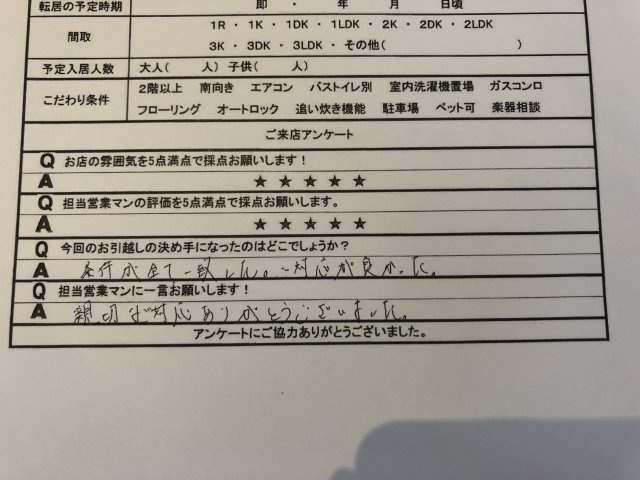 転居の予定時期 即 ・ 年 月 日頃
間取 1R ・ 1K ・ 1DK ・ 1LDK ・ 2K ・ 2DK ・ 2LDK
3K ・ 3DK ・ 3LDK ・ その他( )
予定入居人数 大人( 人) 子供( 人)
こだわり条件 2階以上 南向き エアコン バストイレ別 室内洗濯機置場 ガスコンロ
フローリング オートロック 追い炊き機能 駐車場 ペット可 楽器相談
ご来店アンケート
Q お店の雰囲気を5点満点で採点お願いします！
A ★ ★ ★ ★ ★
Q 担当営業マンの評価を5点満点で採点お願いします。
A ★ ★ ★ ★ ★
Q 今回のお引越しの決め手になったのはどこでしょうか？
A 条件が全て一致した。対応が良かった。
Q 担当営業マンに一言お願いします！
A 親切な対応ありがとうございました。
アンケートにご協力ありがとうございました。